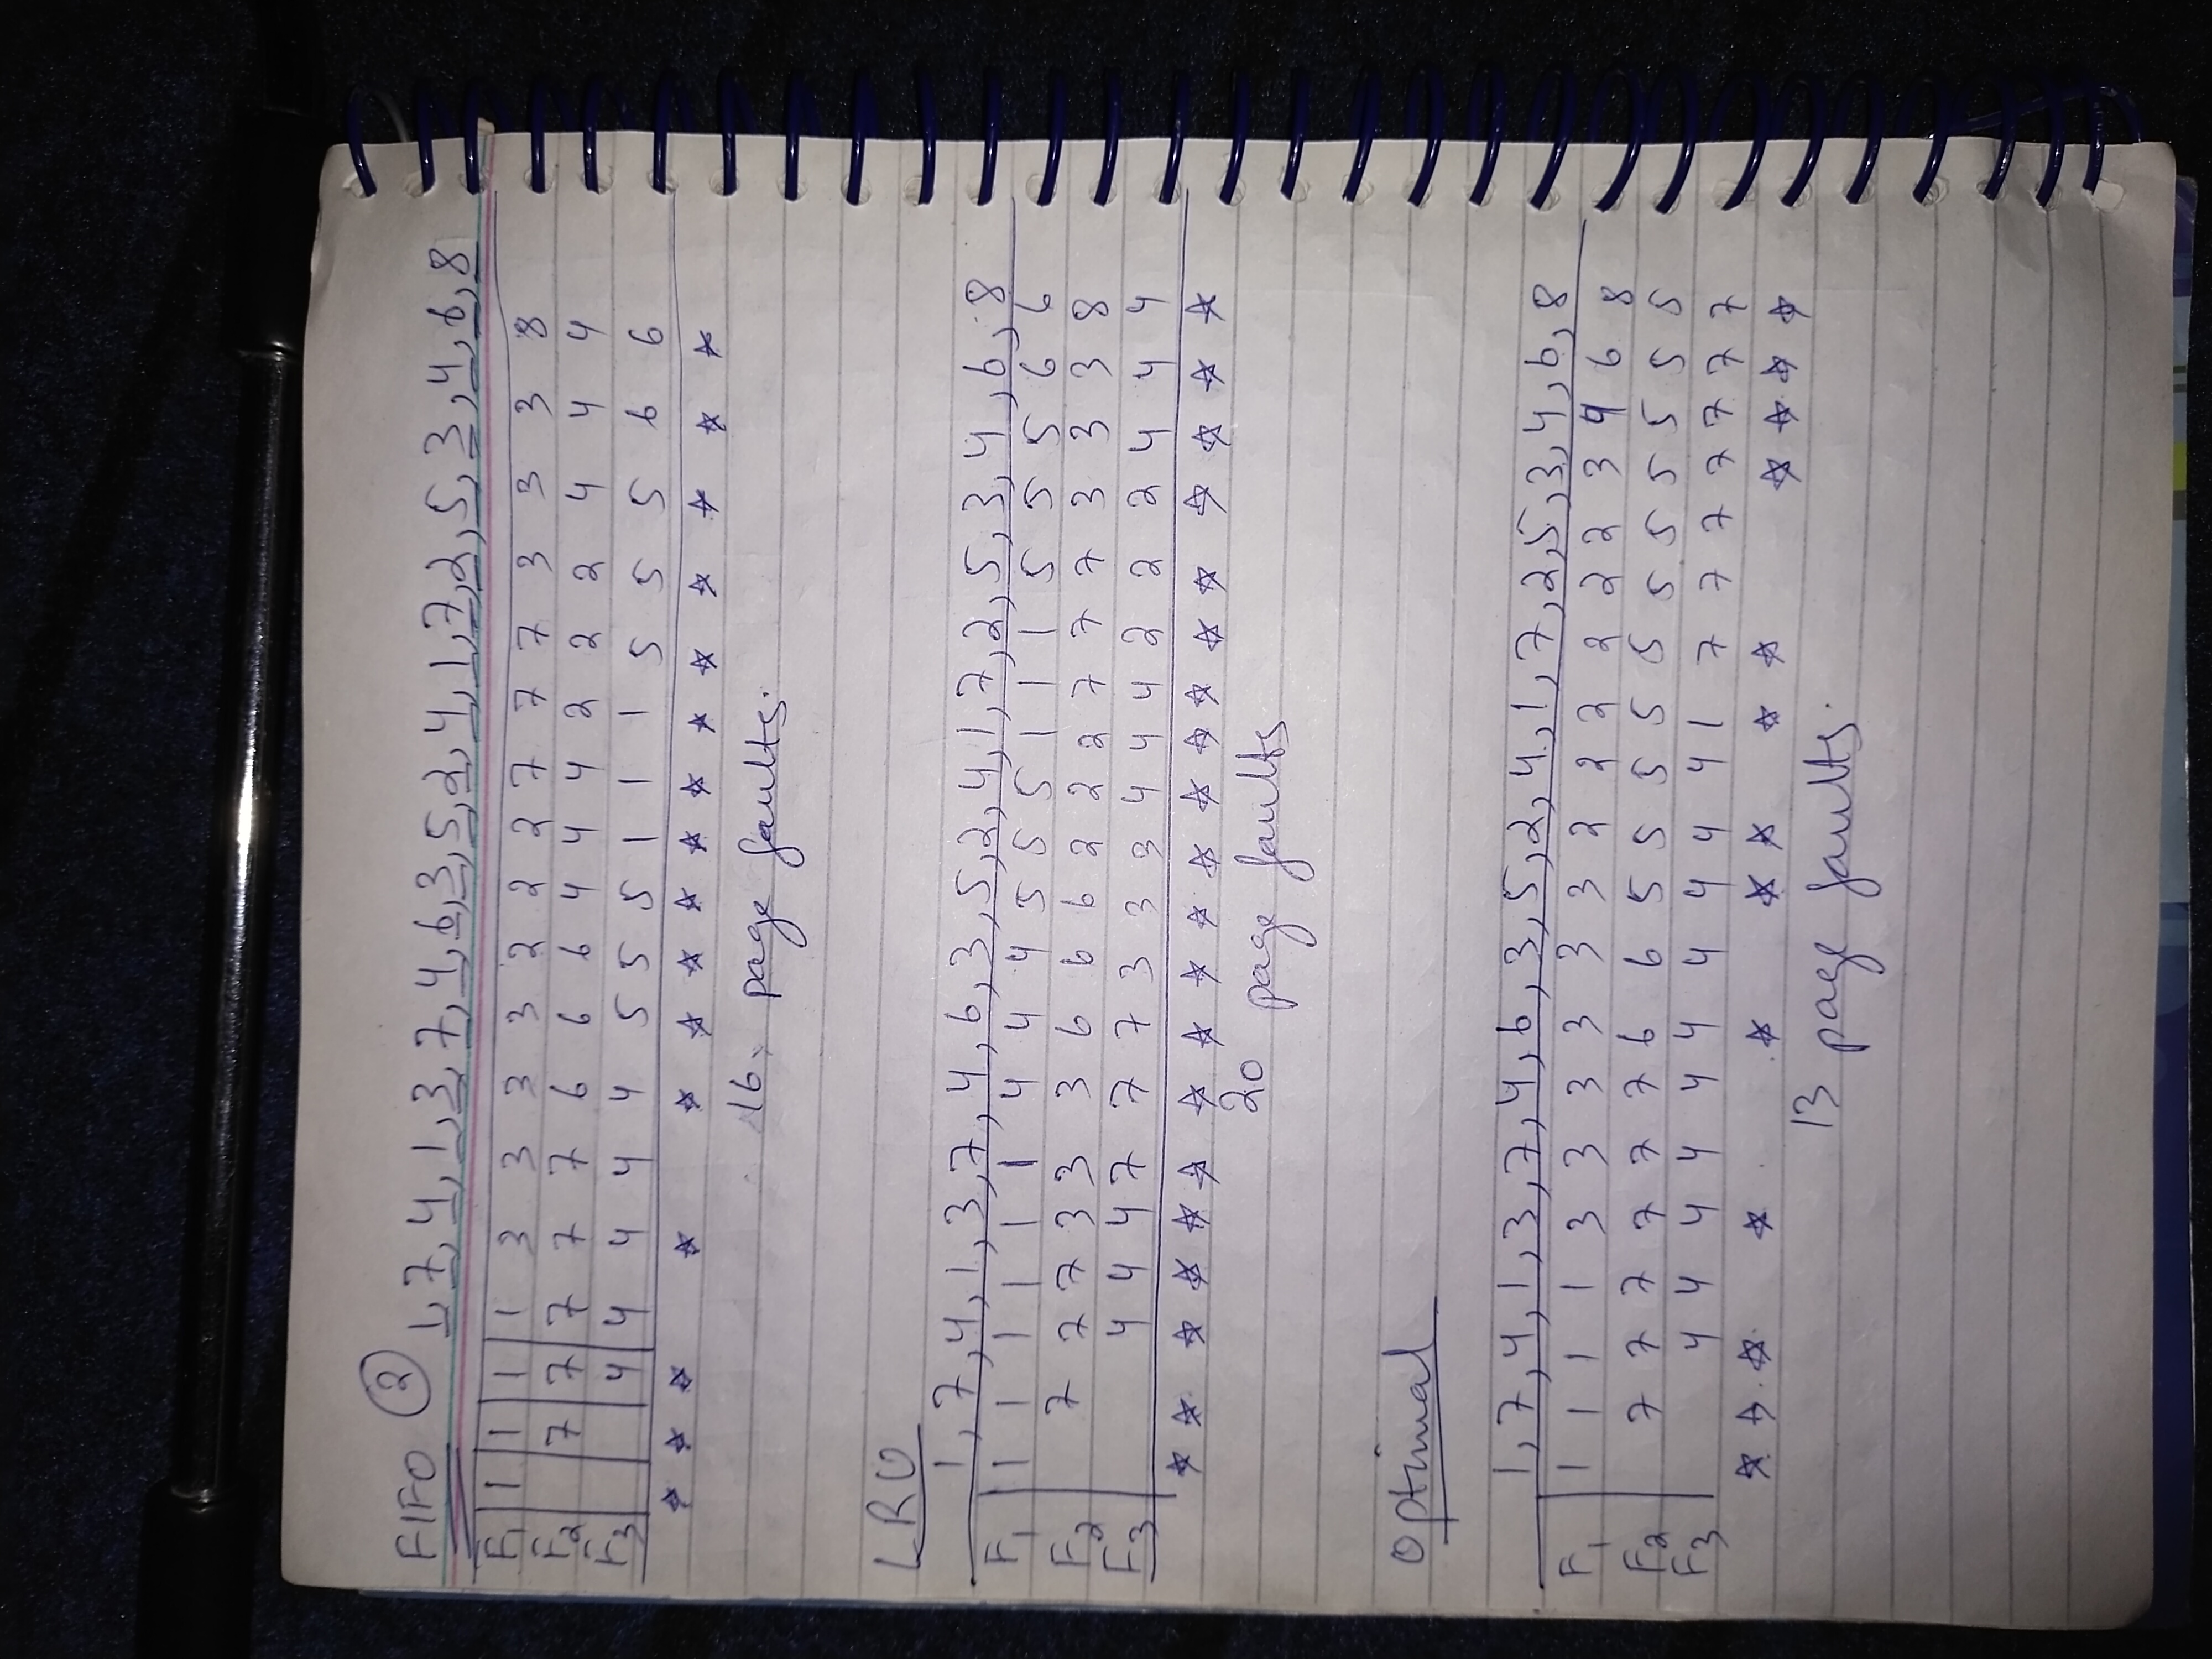 FIFO ② 1,7,4,1,3,7,4,6,3,5,2,4,1,7,2,5,3,4,6,8
F1 1 1 1 1 3 3 3 3 2 2 2 7 7 7 3 3 3 8
F2 7 7 7 7 7 6 6 6 4 4 4 2 2 2 4 4 4
F3 4 4 4 4 4 5 5 5 1 1 1 5 5 5 6 6
☆ ☆ ☆ ☆ ☆ ☆ ☆ ☆ ☆ ☆ ☆ ☆ ☆ ☆ ☆ ☆
16. page faults.
LRU
1,7,4,1,3,7,4,6,3,5,2,4,1,7,2,5,3,4,6,8
F1 1 1 1 1 1 1 4 4 4 5 5 5 1 1 1 5 5 5 6 6
F2 7 7 7 3 3 3 6 6 6 2 2 2 7 7 7 3 3 3 8
F3 4 4 4 7 7 7 3 3 3 4 4 4 2 2 2 4 4 4
☆ ☆ ☆ ☆ ☆ ☆ ☆ ☆ ☆ ☆ ☆ ☆ ☆ ☆ ☆ ☆ ☆ ☆ ☆ ☆
20 page faults
Optimal
1,7,4,1,3,7,4,6,3,5,2,4,1,7,2,5,3,4,6,8
F1 1 1 1 1 3 3 3 3 3 3 2 2 2 2 2 2 3 4 6 8
F2 7 7 7 7 7 7 6 6 5 5 5 5 5 5 5 5 5 5 5
F3 4 4 4 4 4 4 4 4 4 4 1 7 7 7 7 7 7 7
☆ ☆ ☆ ☆ ☆ ☆ ☆ ☆ ☆ ☆ ☆ ☆ ☆
13 page faults.